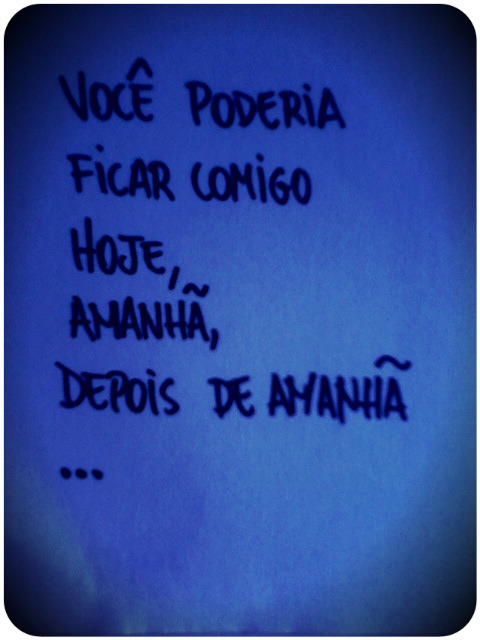 VOCÊ PODERIA
FICAR COMIGO
HOJE,
AMANHÃ,
DEPOIS DE AMANHÃ
...